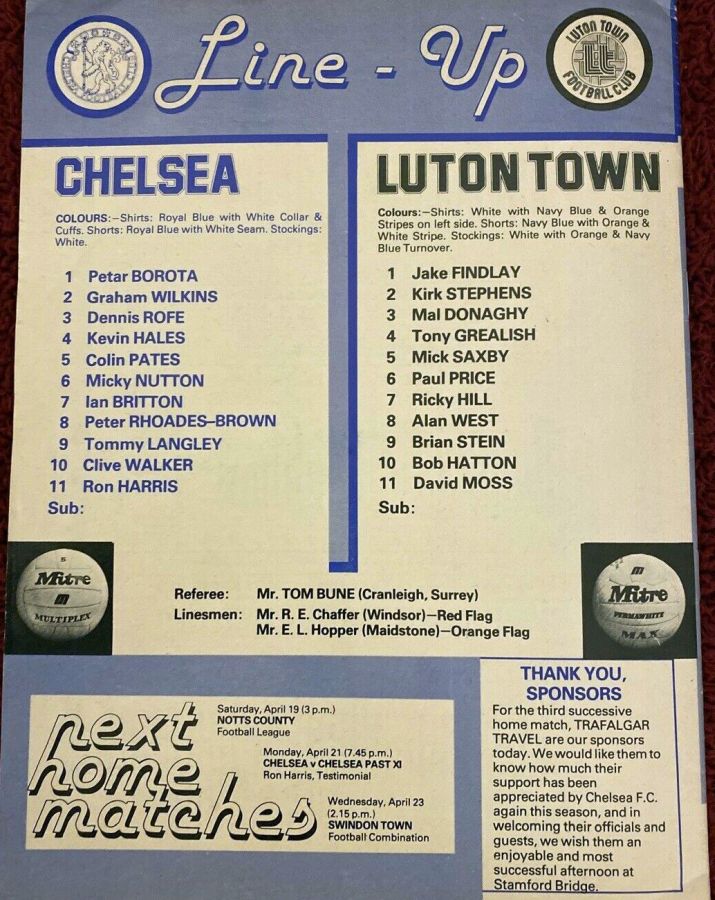 Line - Up
LUTON TOWN
FOOTBALL CLUB
CHELSEA
COLOURS:—Shirts: Royal Blue with White Collar &
Cuffs. Shorts: Royal Blue with White Seam. Stockings:
White.
1 Petar BOROTA
2 Graham WILKINS
3 Dennis ROFE
4 Kevin HALES
5 Colin PATES
6 Micky NUTTON
7 Ian BRITTON
8 Peter RHOADES–BROWN
9 Tommy LANGLEY
10 Clive WALKER
11 Ron HARRIS
Sub:
LUTON TOWN
Colours:—Shirts: White with Navy Blue & Orange
Stripes on left side. Shorts: Navy Blue with Orange &
White Stripe. Stockings: White with Orange & Navy
Blue Turnover.
1 Jake FINDLAY
2 Kirk STEPHENS
3 Mal DONAGHY
4 Tony GREALISH
5 Mick SAXBY
6 Paul PRICE
7 Ricky HILL
8 Alan WEST
9 Brian STEIN
10 Bob HATTON
11 David MOSS
Sub:
5
Mitre
m
MULTIPLEX
Referee: Mr. TOM BUNE (Cranleigh, Surrey)
Linesmen: Mr. R. E. Chaffer (Windsor)—Red Flag
Mr. E. L. Hopper (Maidstone)—Orange Flag
m
Mitre
PERMAWHITE
MAX
next
home
matches
Saturday, April 19 (3 p.m.)
NOTTS COUNTY
Football League
Monday, April 21 (7.45 p.m.)
CHELSEA v CHELSEA PAST XI
Ron Harris, Testimonial
Wednesday, April 23
(2.15 p.m.)
SWINDON TOWN
Football Combination
THANK YOU,
SPONSORS
For the third successive
home match, TRAFALGAR
TRAVEL are our sponsors
today. We would like them to
know how much their
support has been
appreciated by Chelsea F.C.
again this season, and in
welcoming their officials and
guests, we wish them an
enjoyable and most
successful afternoon at
Stamford Bridge.